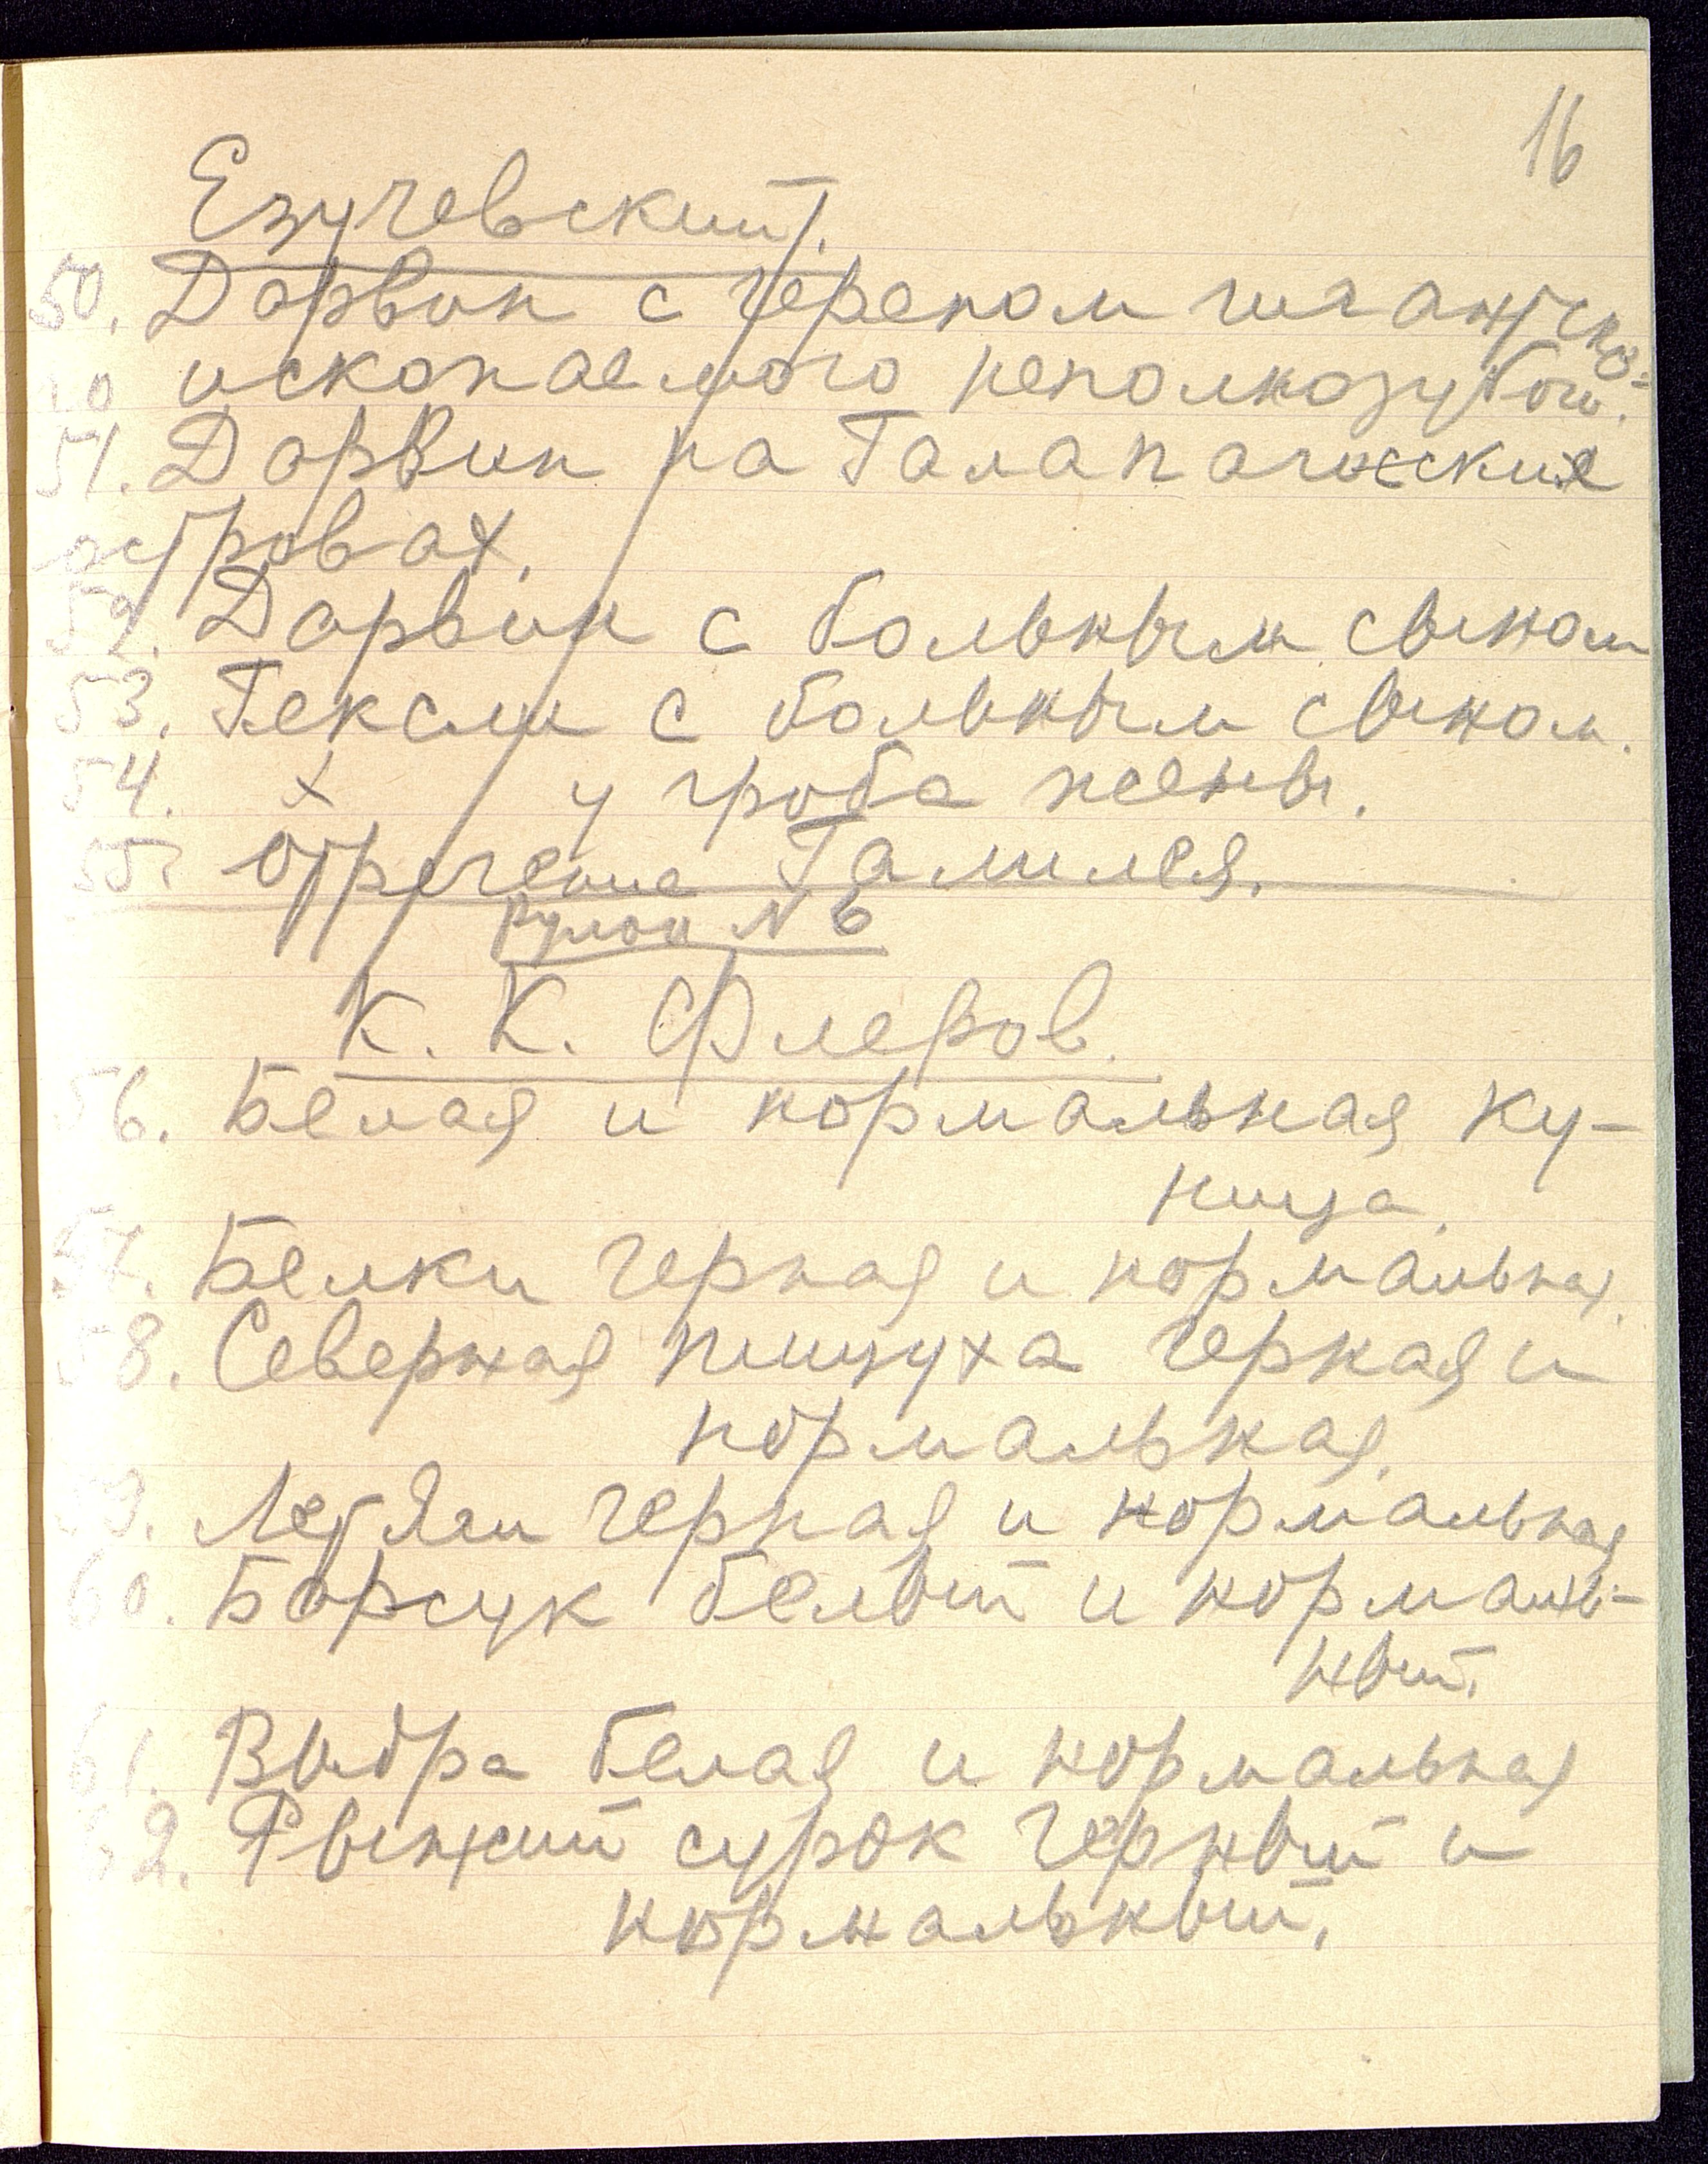 16
Езучевский.
50. Дарвин с черепом гигантско-
ископаемого неполнозубого.
51. Дарвин на Галапагосских
островах.
52. Дарвин с больным сыном
53. Гексли с больным сыном.
54. х у гроба жены.
55. Отречение Галилея.
Рулон № 6
К. К. Флеров.
56. Белая и нормальная ку-
ница.
57. Белки черная и нормальная.
58. Северная пищуха черная и
нормальная.
59. Летяги черная и нормальная
60. Барсук белый и нормаль-
ный.
61. Выдра белая и нормальная
62. Рыжий сурок черный и
нормальный.